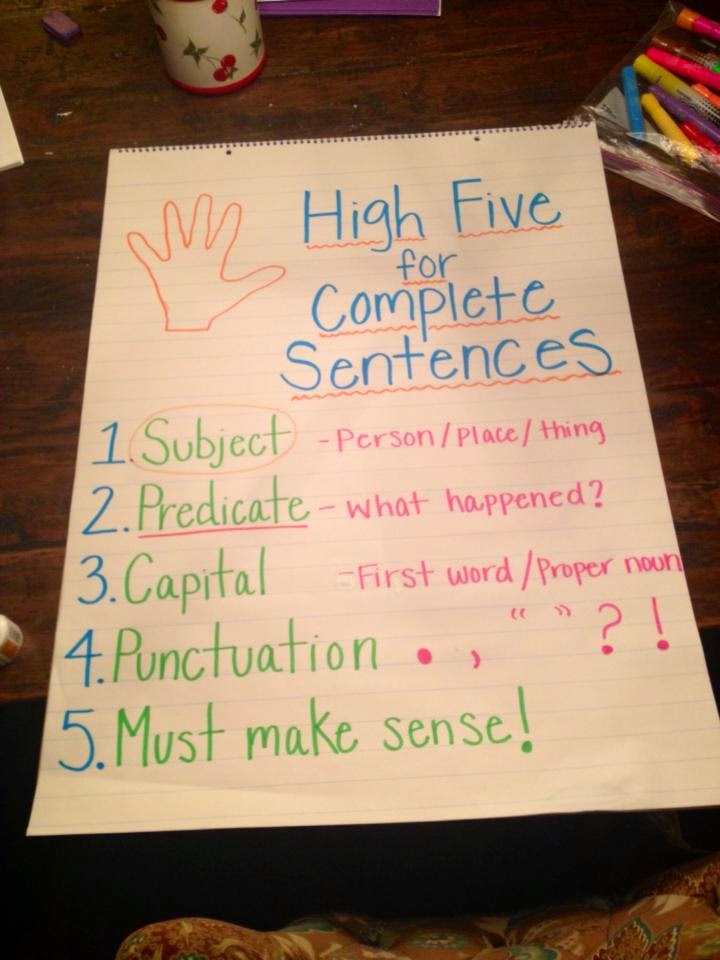 High Five
for
Complete
Sentences
1. Subject - Person/place/thing
2. Predicate - what happened?
3. Capital - First word/Proper noun
4. Punctuation . , “ ” ? !
5. Must make sense!